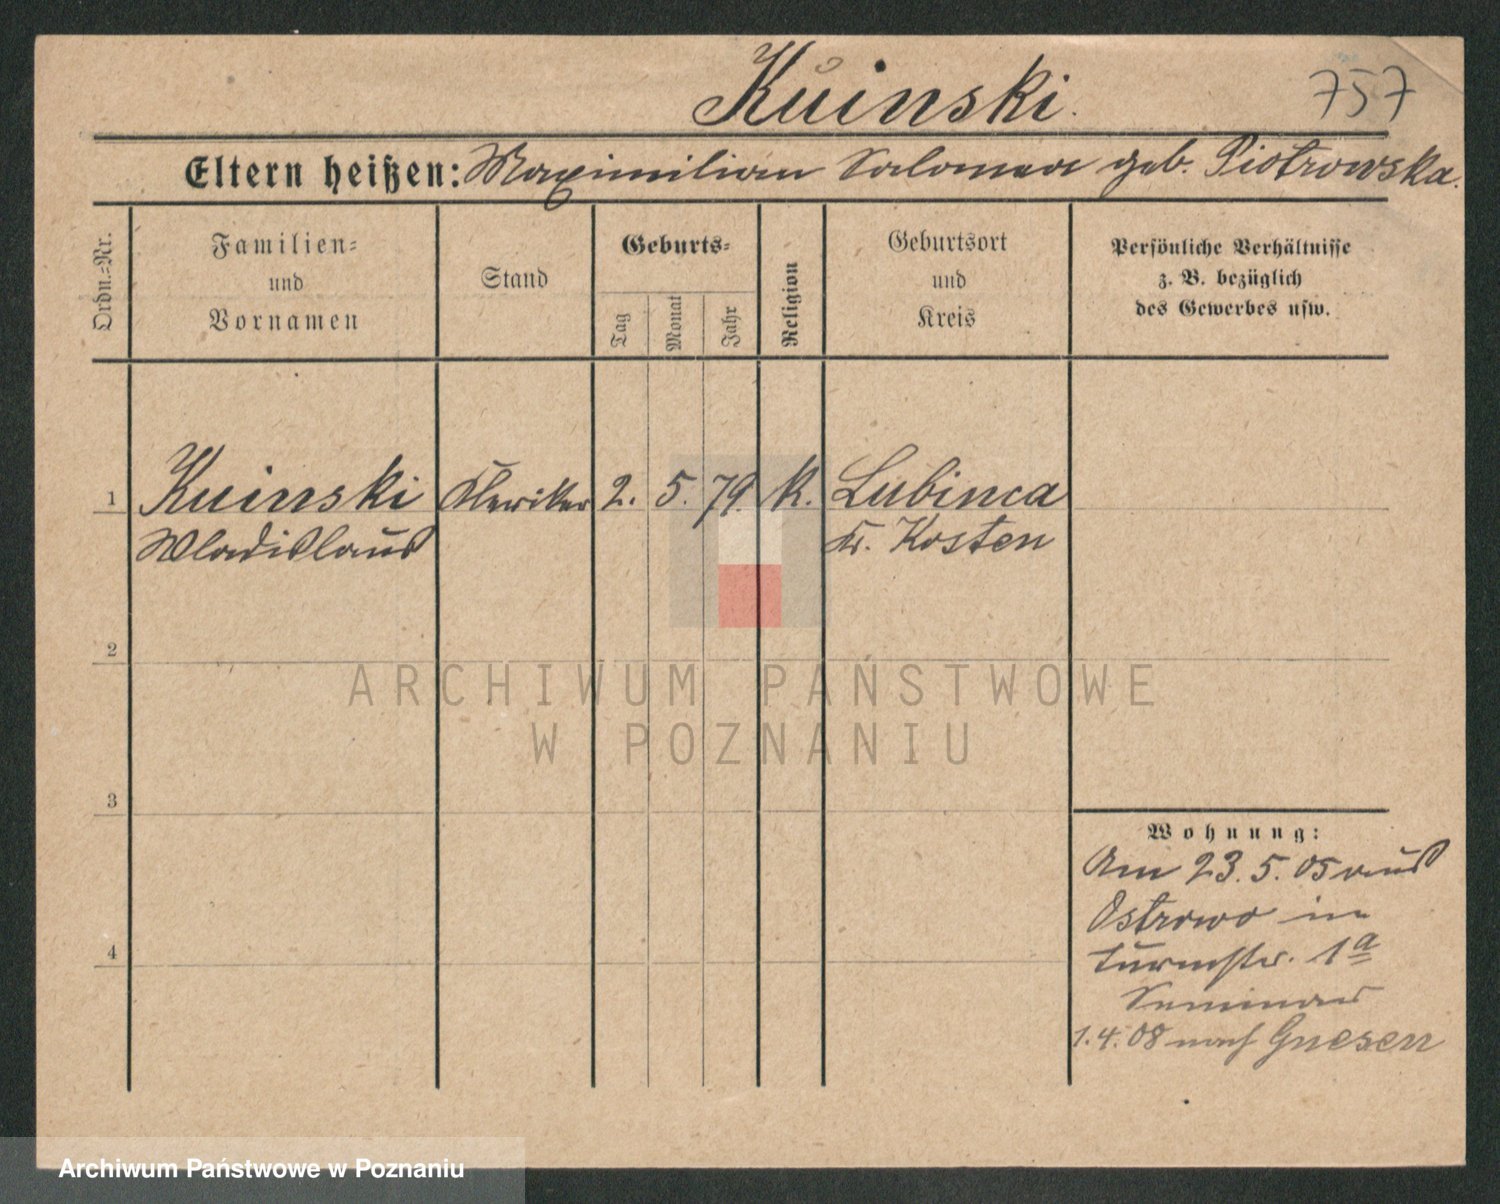 Kuinski.
757
Eltern heißen: Maximilian Salomea geb. Piotrowska.
Ordn.-Nr.
Familien-
und
Vornamen
Stand
Geburts-
Tag
Monat
Jahr
Religion
Geburtsort
und
Kreis
Persönliche Verhältnisse
z. B. bezüglich
des Gewerbes usw.
1 Kuinski Kleriker 2. 5. 79. k. Lubinca
Wladislaus Kr. Kosten
2
3
4
Wohnung:
Am 23. 5. 05 aus
Ostrowo in
Turmstr. 1a
Seminar
1. 4. 08 nach Gnesen
ARCHIWUM PAŃSTWOWE
W POZNANIU
Archiwum Państwowe w Poznaniu